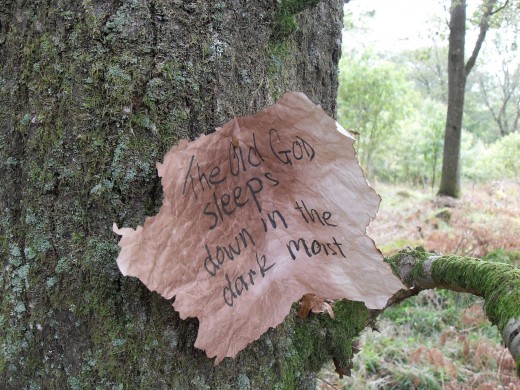 The Old GOD
sleeps
down in the
dark moist